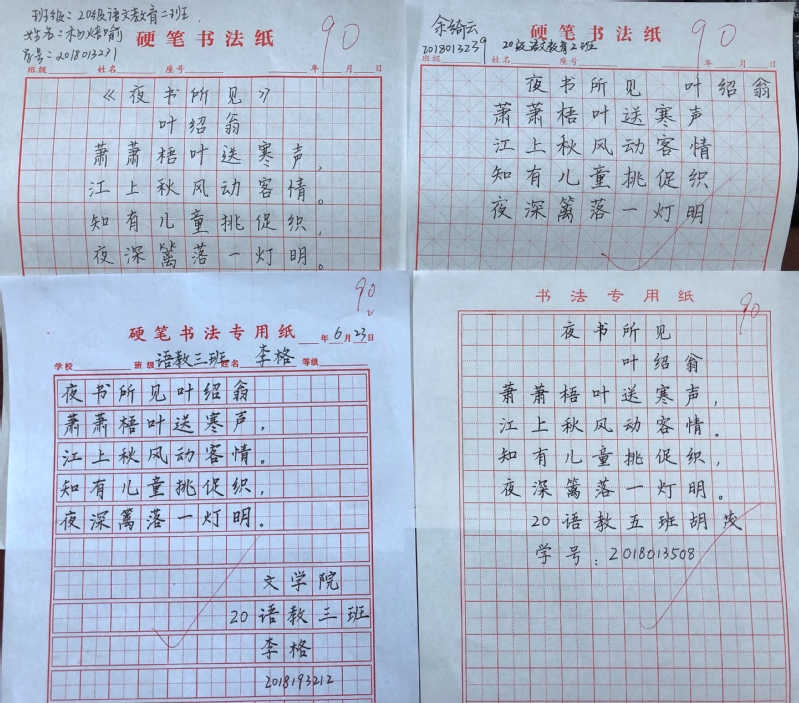 班级：20级语文教育二班
学号：2018013231
90
硬笔书法纸
班级 姓名 座号 年 月 日
《夜书所见》
叶绍翁
萧萧梧叶送寒声，
江上秋风动客情。
知有儿童挑促织，
夜深篱落一灯明。
余绮云
2018013239 20级语文教育2班
90
硬笔书法纸
班级 姓名 座号 年 月 日
夜书所见 叶绍翁
萧萧梧叶送寒声
江上秋风动客情
知有儿童挑促织
夜深篱落一灯明
90
硬笔书法专用纸 年6月23日
学校 班级 语教三班 姓名 李格 等级
夜书所见叶绍翁
萧萧梧叶送寒声，
江上秋风动客情。
知有儿童挑促织，
夜深篱落一灯明。
文学院
20语教三班
李格
2018193212
书法专用纸
90
夜书所见
叶绍翁
萧萧梧叶送寒声，
江上秋风动客情。
知有儿童挑促织，
夜深篱落一灯明。
20语教五班胡茂
学号：2018013508